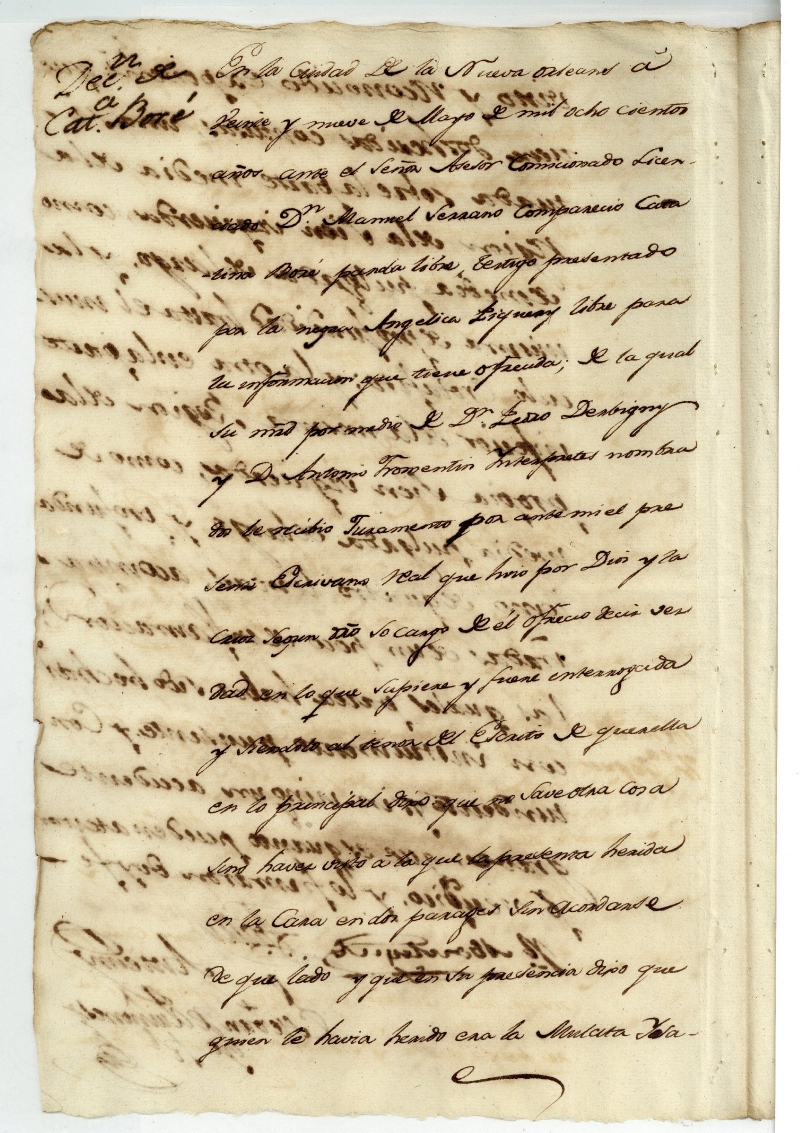 Decn. de
a
Cat. Boré
En la Ciudad de la Nueva Orleans à
veinte y nueve de Mayo de mil ocho cientos
años ante el Señor Asesor Comicionado Licen-
ciado Dn. Manuel Serrano Comparecio Cata
-lina Boré parda libre, testigo presentado
por la negra Angelica libre para
la informacion que tiene ofrecida; de la qual
su mrd por medio de Dn. Pedro Derbigny
y Dn. Antonio Fromentin Interpretes nombra
dos le recibio Juramento por ante mi el pre
sente Escrivano real que hizo por Dios y la
Cruz segun dro so cargo de el ofrecio decir ver
dad en lo que supiere y fuere interrogada
y siendolo al tenor del Escrito de querella
en lo principal dixo que no save otra cosa
sino haver visto a la que la presenta herida
en la Cara en dos parages sin acordarse
de que lado y que en su presencia dixo que
quien le havia herido era la Mulata Ysa-